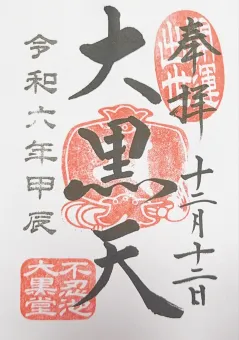 奉拝
大黒天
十二月十二日
令和六年甲辰
不忍池
大黒堂